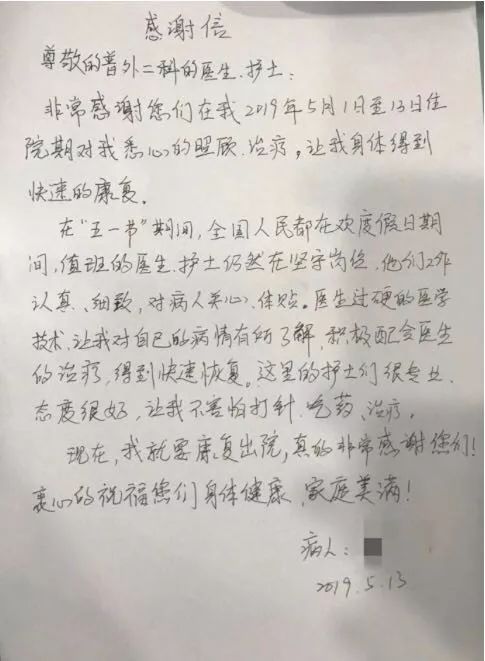 感谢信
尊敬的普外二科的医生、护士：
非常感谢您们在我2019年5月1日至13日住
院期对我悉心的照顾、治疗，让我身体得到
快速的康复。
在“五一节”期间，全国人民都在欢度假日期
间，值班的医生、护士仍然在坚守岗位，他们工作
认真、细致，对病人关心、体贴。医生过硬的医学
技术、让我对自己的病情有所了解，积极配合医生
的治疗，得到快速恢复。这里的护士们很专业、
态度很好，让我不害怕打针、吃药、治疗。
现在，我就要康复出院，真的非常感谢您们！
衷心的祝福您们身体健康、家庭美满！
病人：
2019.5.13